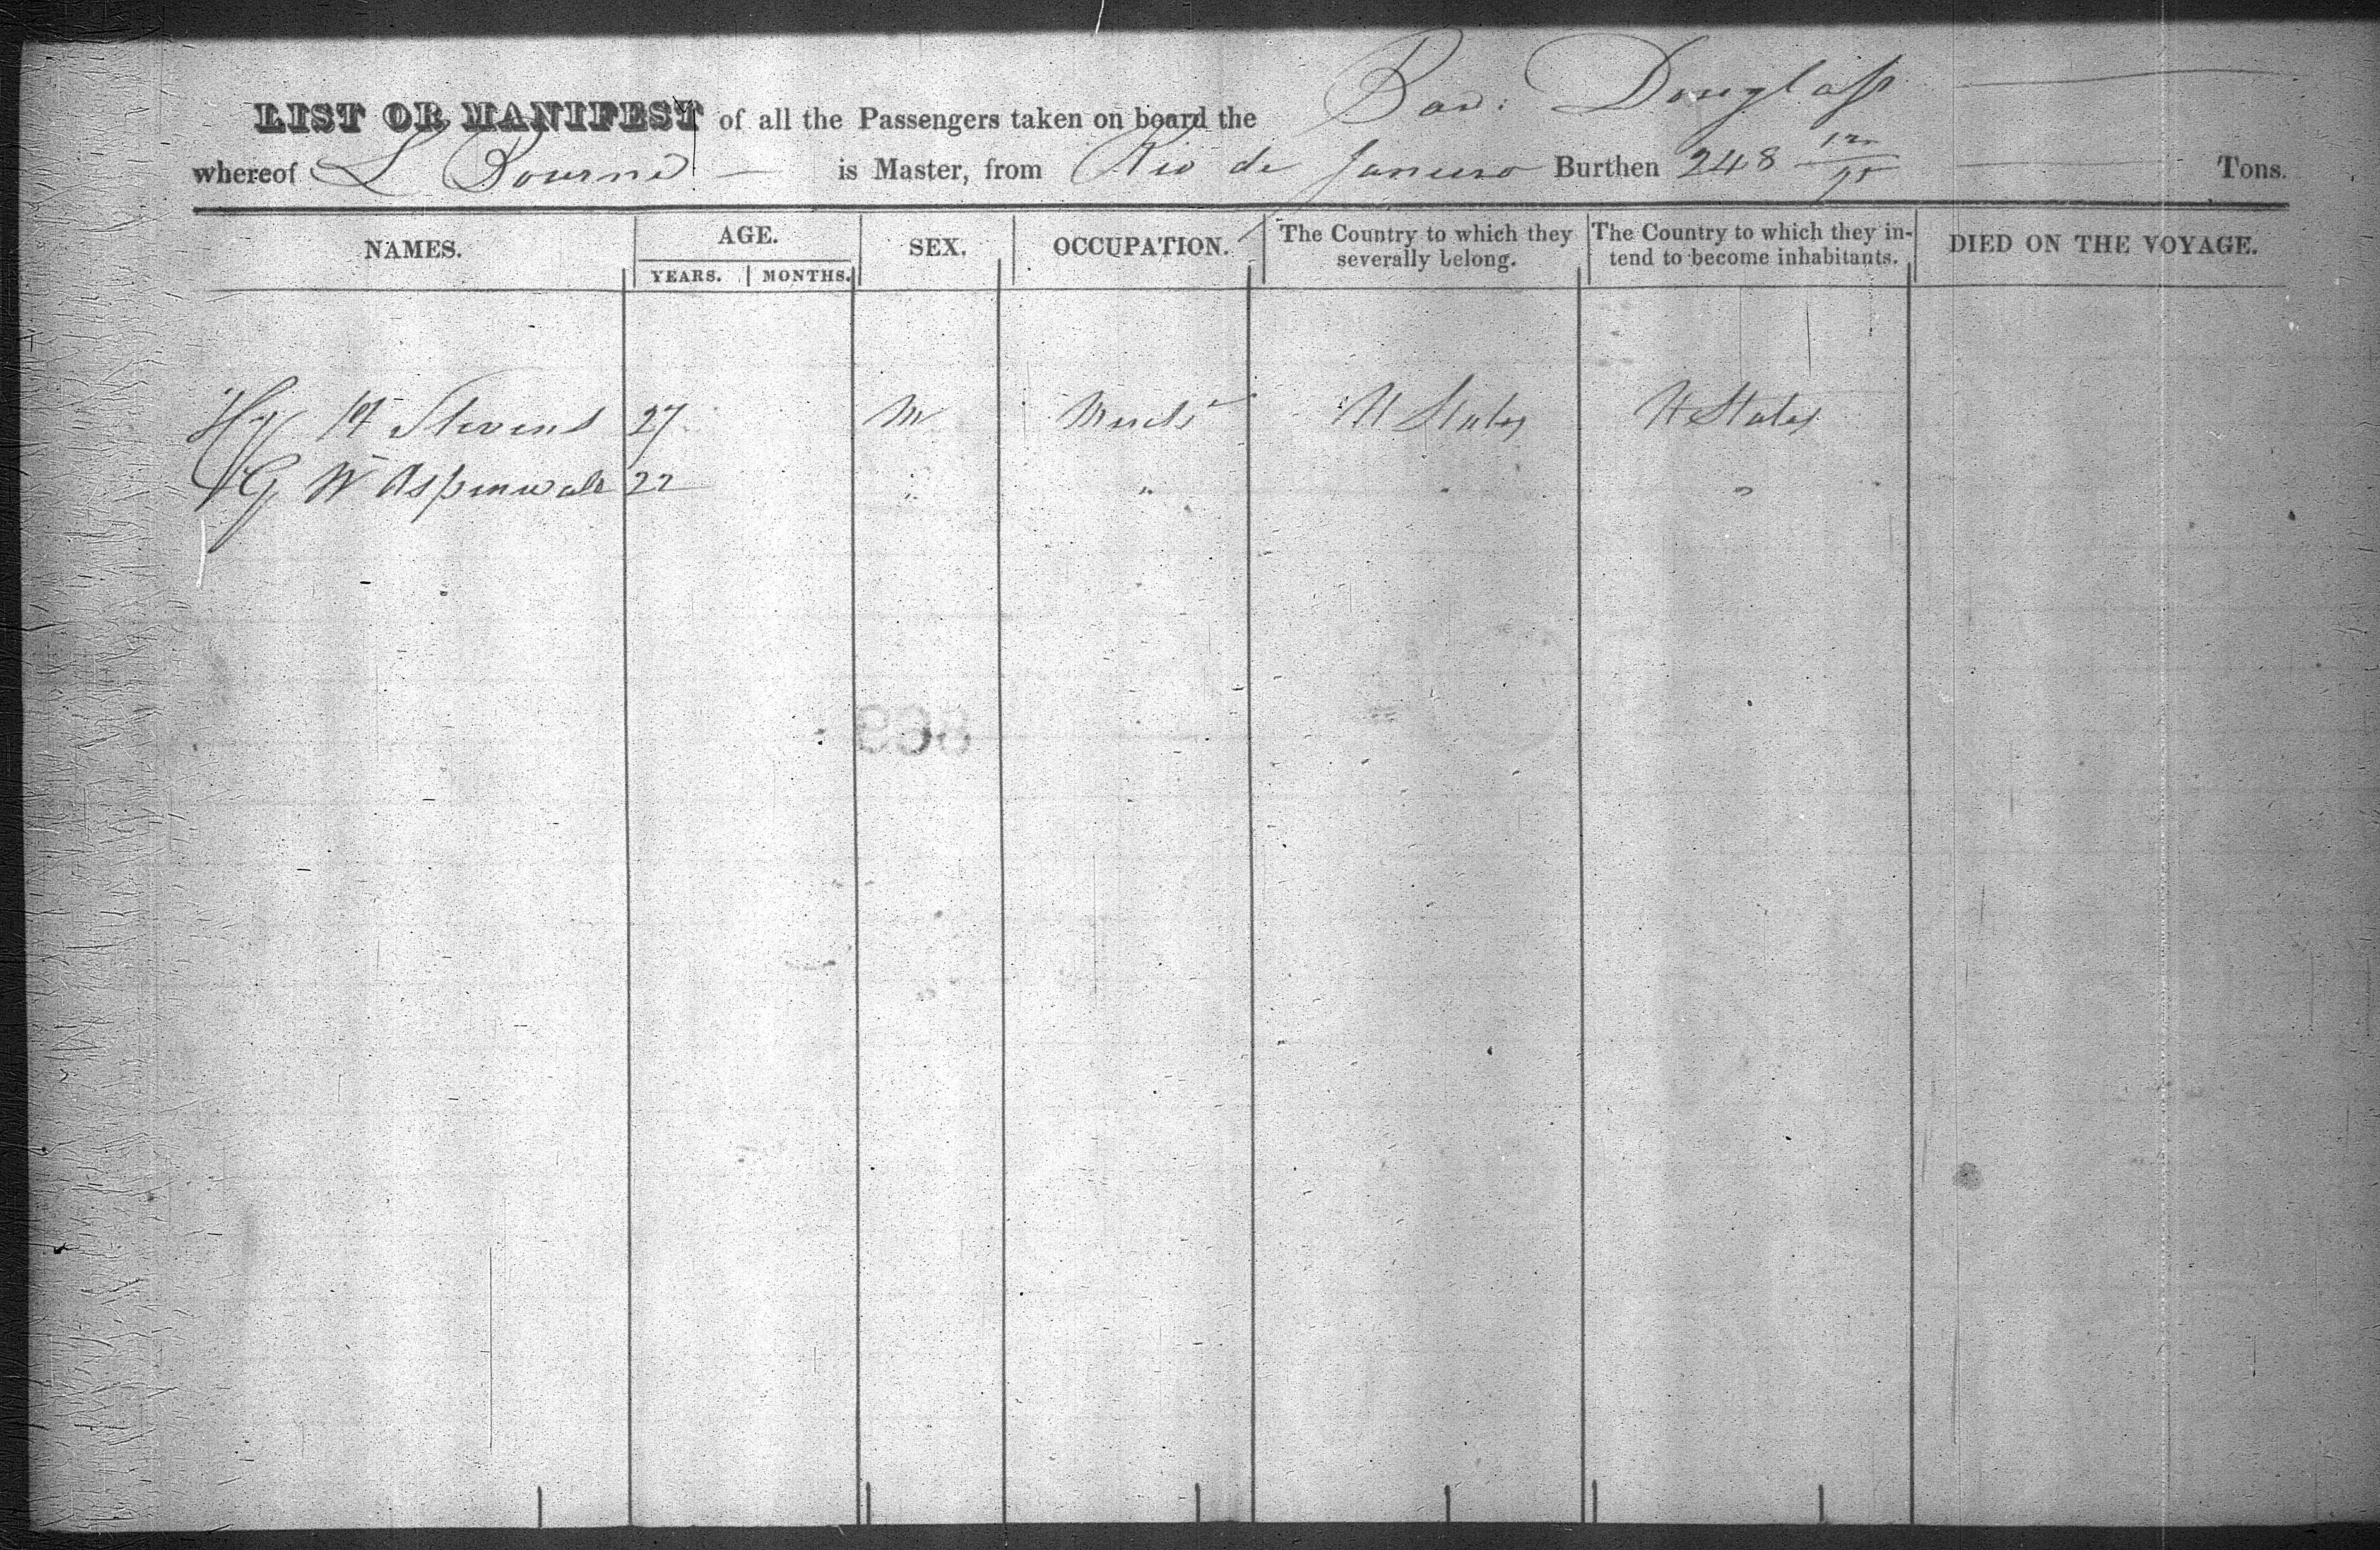 LIST OR MANIFEST of all the Passengers taken on board the Bar: Douglass
whereof L Bourne is Master, from Rio de Janeiro Burthen 248 /95 Tons.
NAMES. AGE. SEX. OCCUPATION. The Country to which they severally belong. The Country to which they intend to become inhabitants. DIED ON THE VOYAGE.
YEARS. MONTHS.
Hy Stevens 27 M Mercht U States U States
G W Aspinwall 22 " " " "